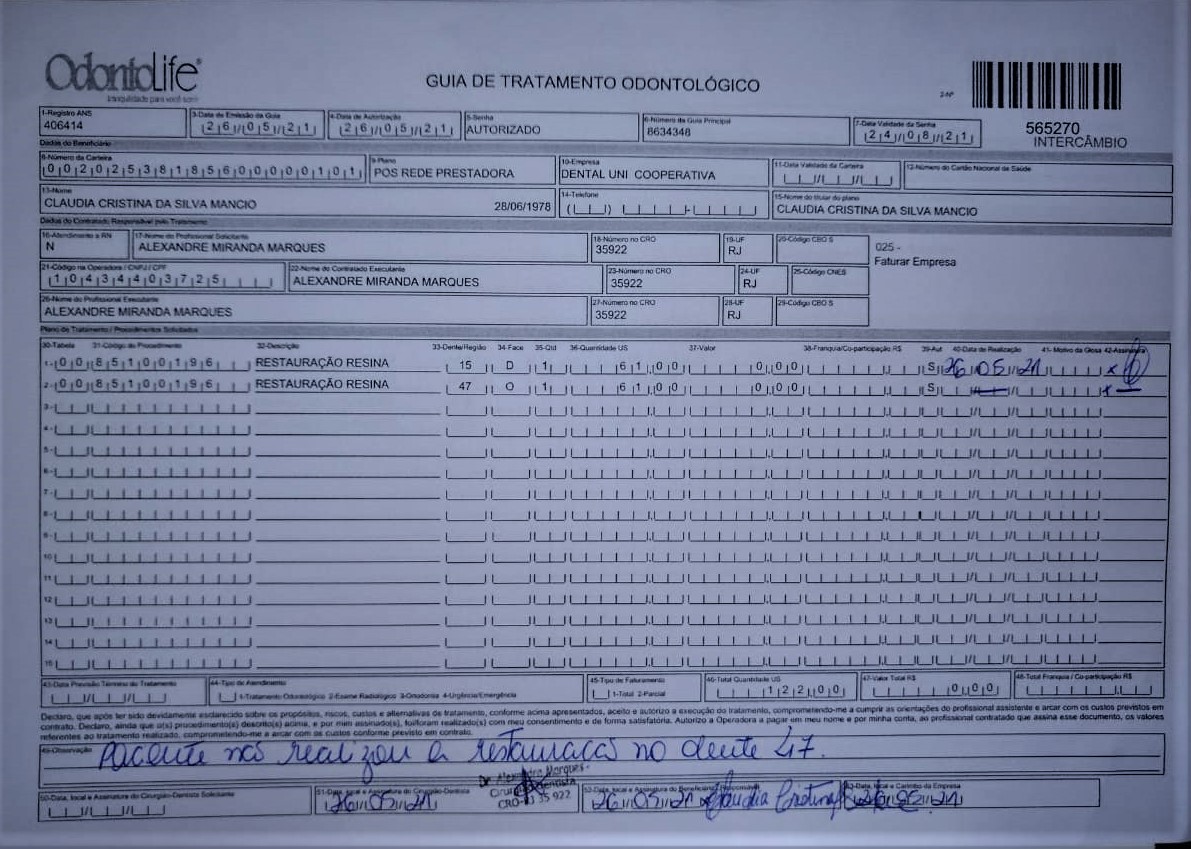 OdontoLife
tranquilidade para você sorrir
GUIA DE TRATAMENTO ODONTOLÓGICO
2-Nº
565270
INTERCÂMBIO
1-Registro ANS 3-Data de Emissão da Guia 4-Data de Autorização 5-Senha 6-Número da Guia Principal 7-Data Validade da Senha
406414 26/05/21 26/05/21 AUTORIZADO 8634348 24/08/21
Dados do Beneficiário
8-Número da Carteira 9-Plano 10-Empresa 11-Data Validade da Carteira 12-Número do Cartão Nacional de Saúde
00202538185600000101 POS REDE PRESTADORA DENTAL UNI COOPERATIVA
13-Nome 14-Telefone 15-Nome do titular do plano
CLAUDIA CRISTINA DA SILVA MANCIO 28/06/1978 CLAUDIA CRISTINA DA SILVA MANCIO
Dados do Contratado Responsável pelo Tratamento
16-Atendimento a RN 17-Nome do Profissional Solicitante 18-Número no CRO 19-UF 20-Código CBO S
N ALEXANDRE MIRANDA MARQUES 35922 RJ
025 -
Faturar Empresa
21-Código na Operadora / CNPJ / CPF 22-Nome do Contratado Executante 23-Número no CRO 24-UF 25-Código CNES
10434403725 ALEXANDRE MIRANDA MARQUES 35922 RJ
26-Nome do Profissional Executante 27-Número no CRO 28-UF 29-Código CBO S
ALEXANDRE MIRANDA MARQUES 35922 RJ
Plano de Tratamento / Procedimentos Solicitados
30-Tabela 31-Código do Procedimento 32-Descrição 33-Dente/Região 34-Face 35-Qtd 36-Quantidade US 37-Valor 38-Franquia/Co-participação R$ 39-Aut 40-Data de Realização 41-Motivo da Glosa 42-Assinatura
1- 00 85100196 RESTAURAÇÃO RESINA 15 D 1 61,00 0,00 S 26/05/21 x
2- 00 85100196 RESTAURAÇÃO RESINA 47 O 1 61,00 0,00 S x
3-
4-
5-
6-
7-
8-
9-
10
11
12
13
14
15
43-Data Previsão Término do Tratamento 44-Tipo de Atendimento 45-Tipo de Faturamento 46-Total Quantidade US 47-Valor Total R$ 48-Total Franquia / Co-participação R$
1-Tratamento Odontológico 2-Exame Radiológico 3-Ortodontia 4-Urgência/Emergência 1-Total 2-Parcial 122,00 0,00
Declaro, que após ter sido devidamente esclarecido sobre os propósitos, riscos, custos e alternativas de tratamento, conforme acima apresentados, aceito e autorizo a execução do tratamento, comprometendo-me a cumprir as orientações do profissional assistente e arcar com os custos previstos em
contrato. Declaro, ainda que a(s) procedimento(s) descrito(s) acima, e por mim assinado(s), foi/foram realizado(s) com meu consentimento e de forma satisfatória. Autorizo a Operadora a pagar em meu nome e por minha conta, ao profissional contratado que assina esse documento, os valores
referentes ao tratamento realizado, comprometendo-me a arcar com os custos conforme previsto em contrato.
49-Observação
Paciente não realizou a restauração no dente 47.
Dr. Alexandre Marques
Cirurgião Dentista
CRO-RJ 35 922
50-Data, local e Assinatura do Cirurgião-Dentista Solicitante 51-Data, local e Assinatura do Cirurgião-Dentista 52-Data, local e Assinatura do Beneficiário/Responsável 53-Data, local e Carimbo da Empresa
26/05/21 26/05/21 x Claudia Cristina 26/05/21